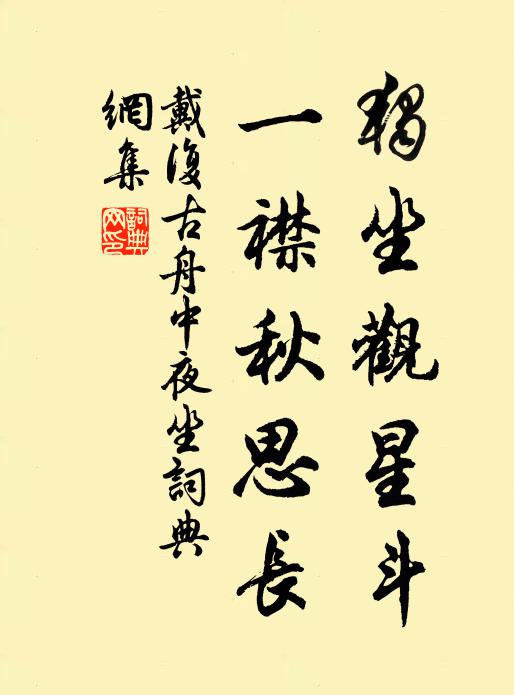 獨坐觀星斗
一襟秋思長
戴復古舟中夜坐詞典
網集
詞典網印